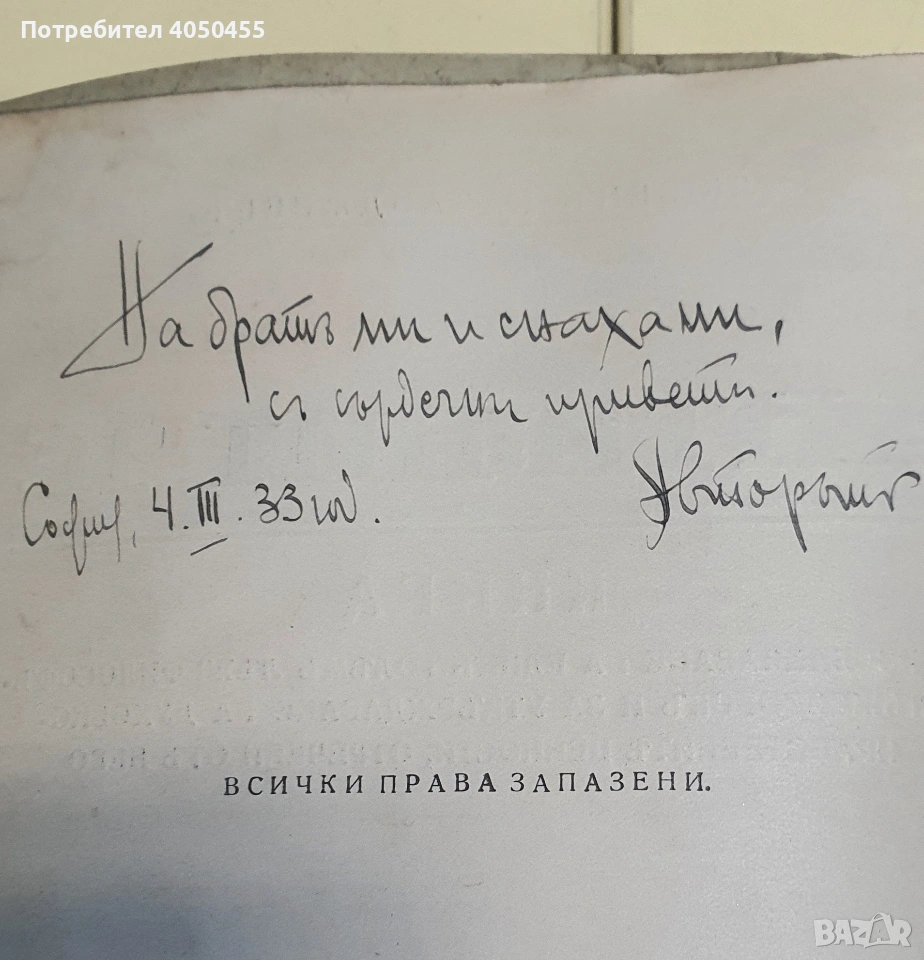 Потребител 4050455
На братъ ми и снаха ми,
съ сърдечни привети.
София, 4.III.33 год.
Авторътъ
ВСИЧКИ ПРАВА ЗАПАЗЕНИ.
BAZAR